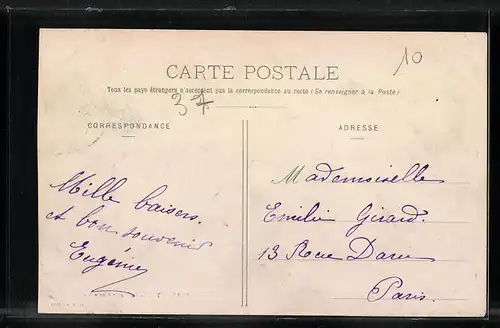 10
CARTE POSTALE
Tous les pays étrangers n'acceptent pas la correspondance au recto (Se renseigner à la Poste)
37
CORRESPONDANCE
Mille baisers.
et bon souvenir
Eugénie
ADRESSE
Mademoiselle
Emilie Girard.
13 Rue Daru
Paris.